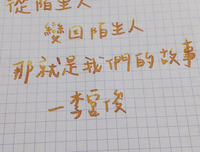 從陌生人
變回陌生人
那就是我們的故事
—李豆俊